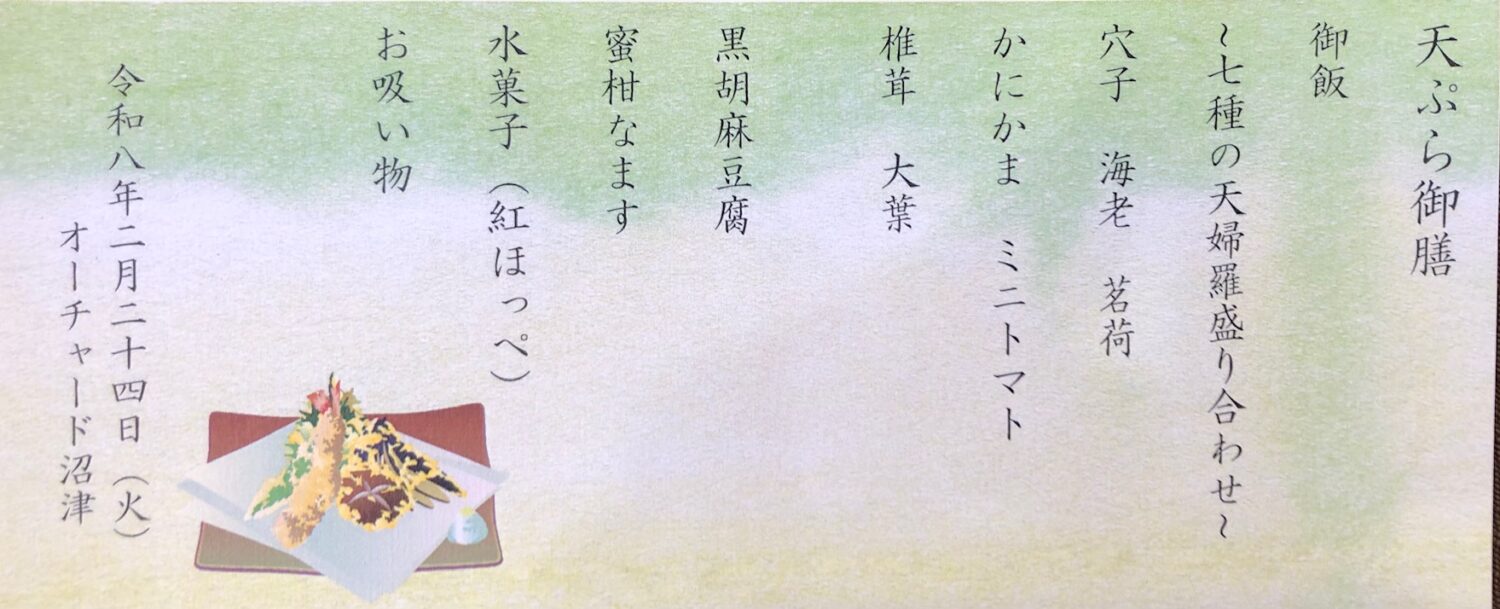 天ぷら御膳
御飯
~七種の天婦羅盛り合わせ~
穴子 海老 茗荷
かにかま ミニトマト
椎茸 大葉
黒胡麻豆腐
蜜柑なます
水菓子(紅ほっぺ)
お吸い物
令和八年二月二十四日(火)
オーチャード沼津